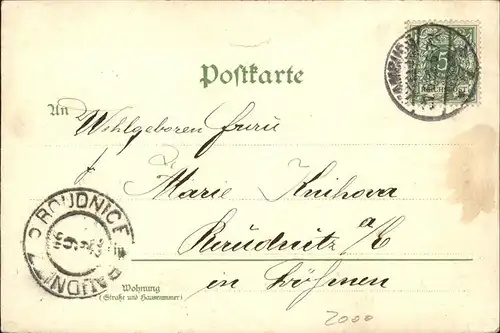 Postkarte
5
REICHSPOST
An
Wohlgeboren Frau
Marie Knihova
Raudnitz a/E
in Böhmen
ROUDNICE
RAUDNITZ
Wohnung
(Straße und Hausnummer)
2000